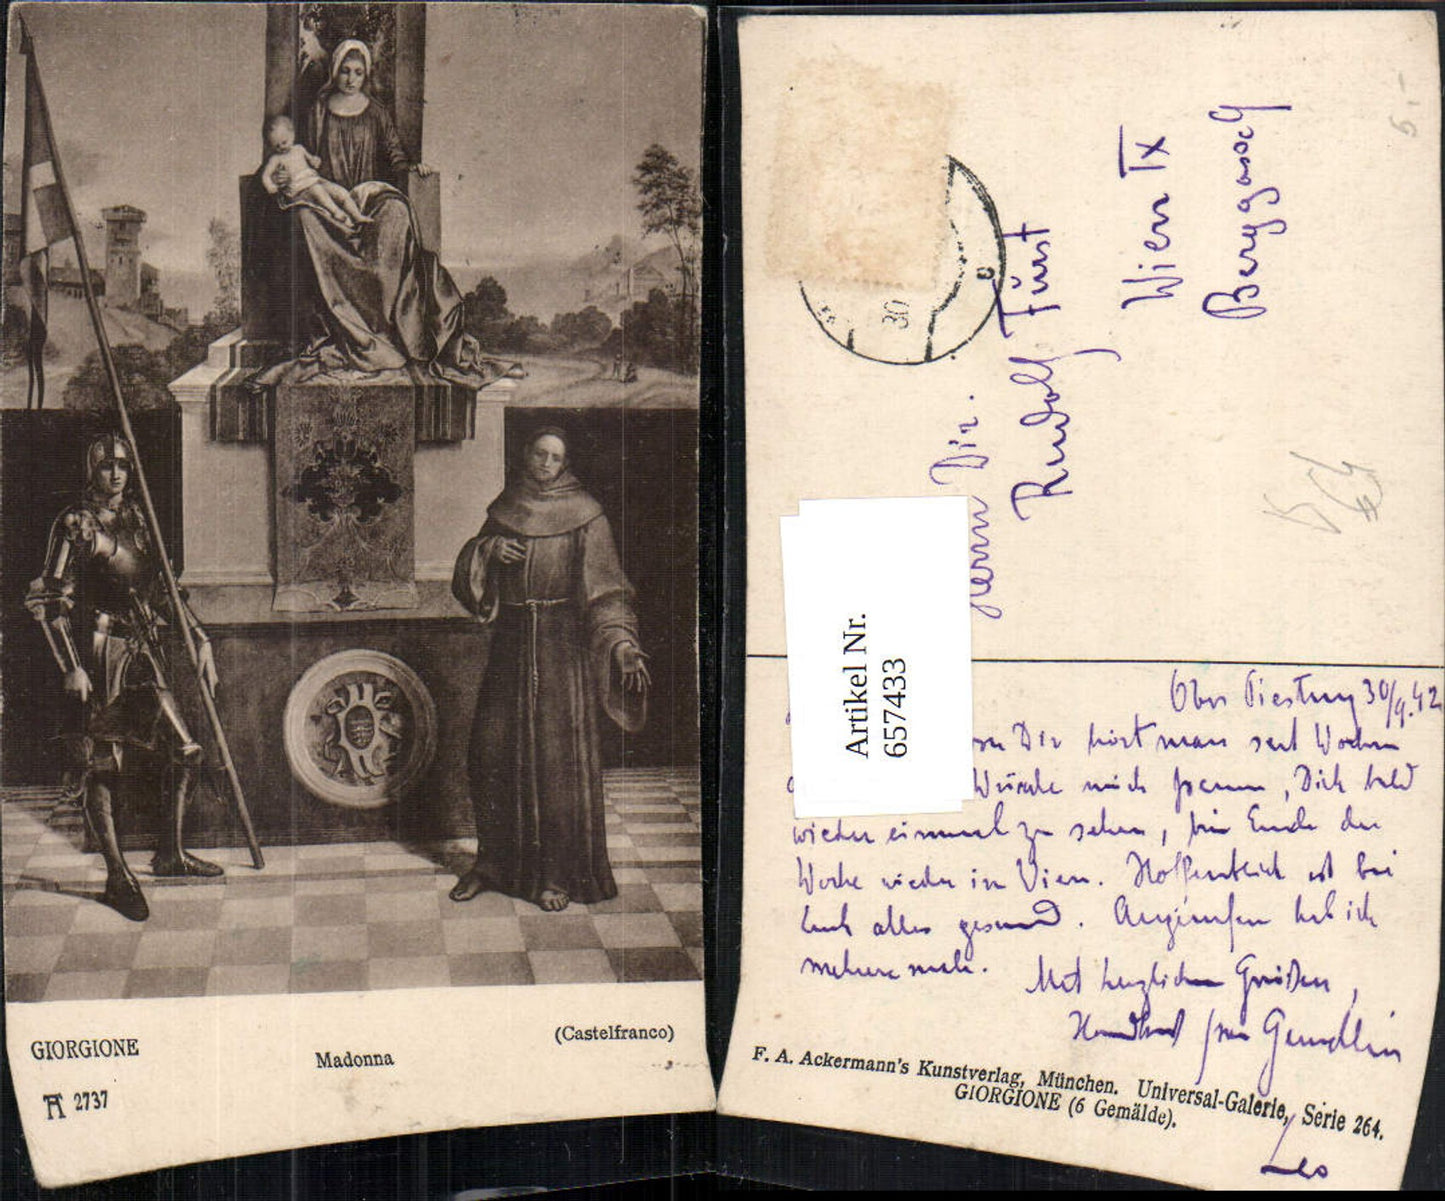 GIORGIONE
Madonna
(Castelfranco)
2737
30
Herrn Dir.
Rudolf Fürst
Wien IX
Berggasse 4
5.-
Artikel Nr.
657433
Ober Piesting 30/9.42
Dir hört man seit Wochen
Würde mich freuen, Dich bald
wieder einmal zu sehen, bin Ende der
Woche wieder in Wien. Hoffentlich ist bei
Euch alles gesund. Angerufen hab ich
mehrere male. Mit herzlichen Grüßen,
Handkuß
Leo
F. A. Ackermann's Kunstverlag, München. Universal-Galerie, Serie 264.
GIORGIONE (6 Gemälde).